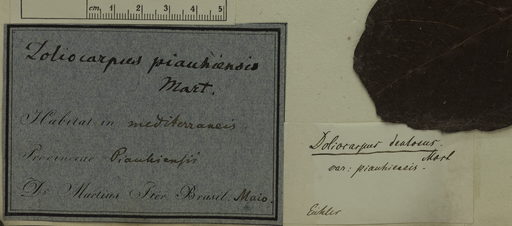 cm 1 2 3 4 5
Doliocarpus piauhiensis
Mart.
Habitat in mediterraneis
Provinciae Piauhiensis
Dr. Martius Iter Brasil. Maio.
Doliocarpus dentosus.
Mart
var: piauhiensis.
Eichler